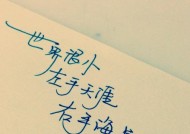 世界很小
左手天涯
右手海